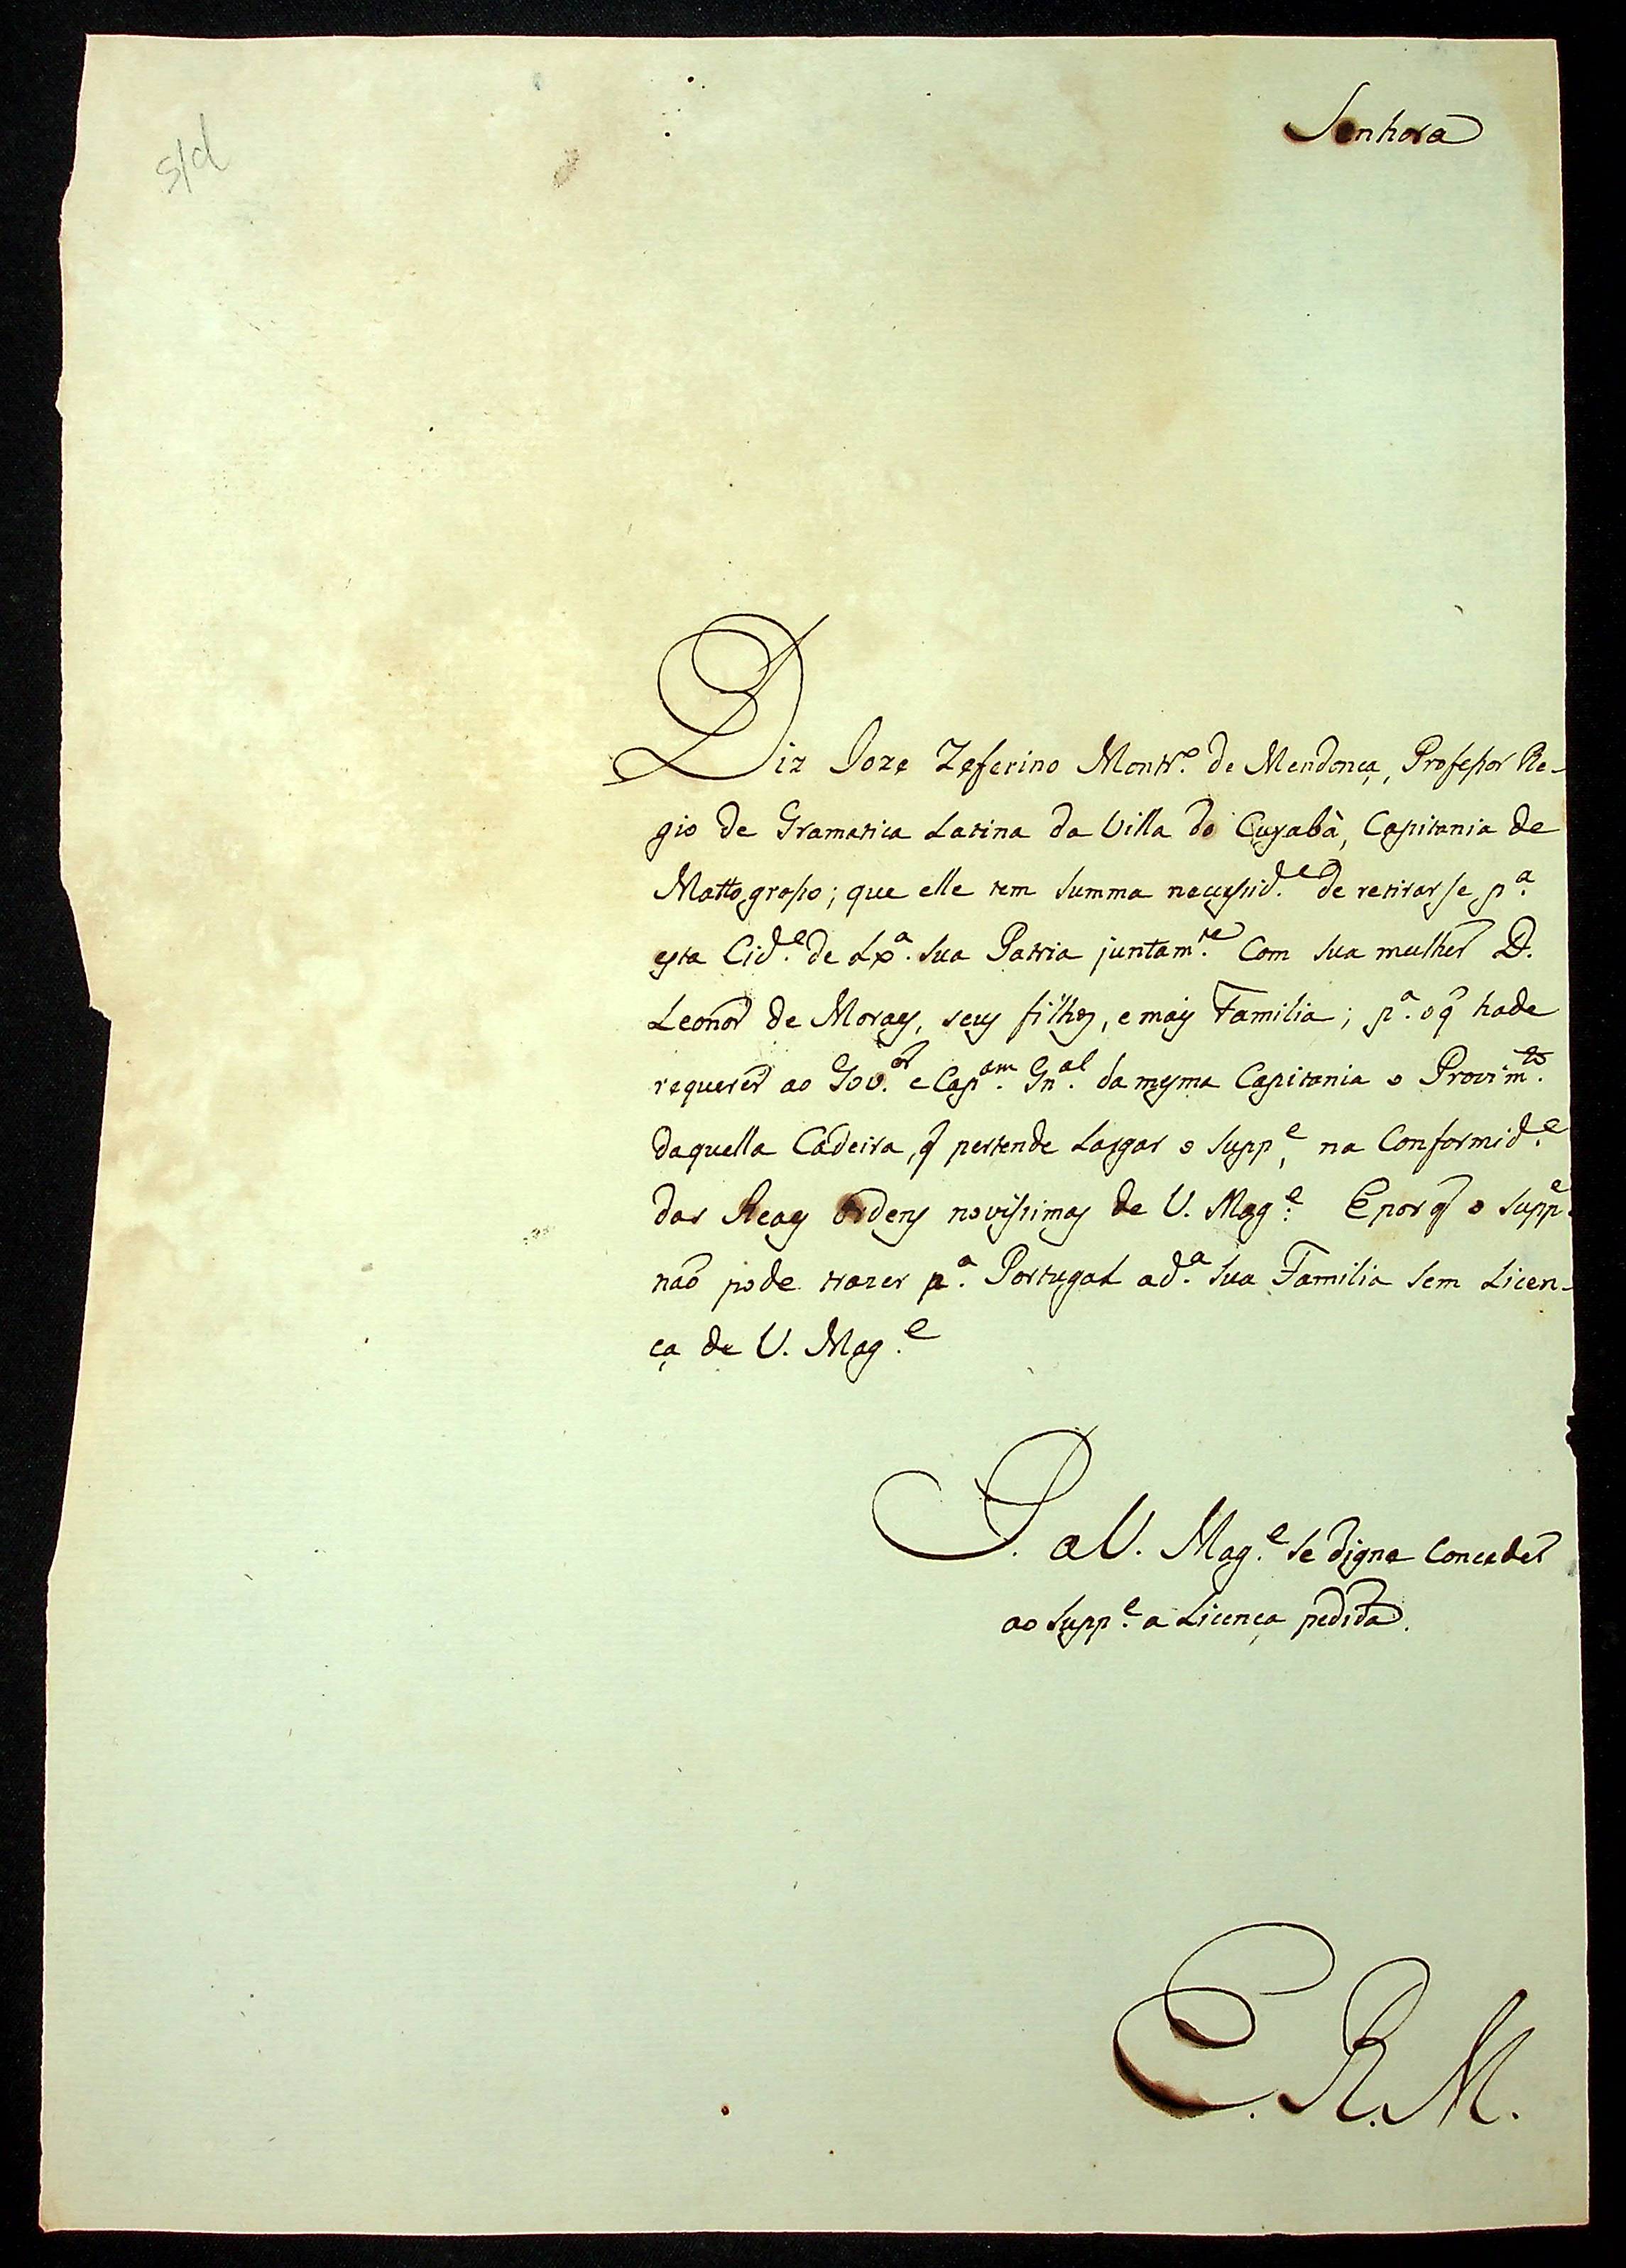 s/d
Senhora
Diz Joze Zeferino Montr.º de Mendonça, Professor Re-
gio de Gramatica Latina da Villa do Cuyabà, Capitania de
Mattogrosso; que elle tem summa necessid.e de retirarse p.a
esta Cid.e de Lx.a sua Patria juntam.te Com sua mulher D.
Leonor de Moraes, seus filhos, e mais Familia; p.a o q̃ hade
requerer ao Gov.or e Cap.am Gn.al da mesma Capitania o Provim.to
daquella Cadeira, q̃ pertende Largar o Supp.e, na Conformid.e
das Reaes Ordens novissimas de V. Mag.e E por q̃ o Supp.e
naõ pode trazer p.a Portugal a d.a sua Familia sem Licen-
ça de V. Mag.e
P. a V. Mag.e se digne Conceder
ao Supp.e a Licença pedida.
E. R. M.